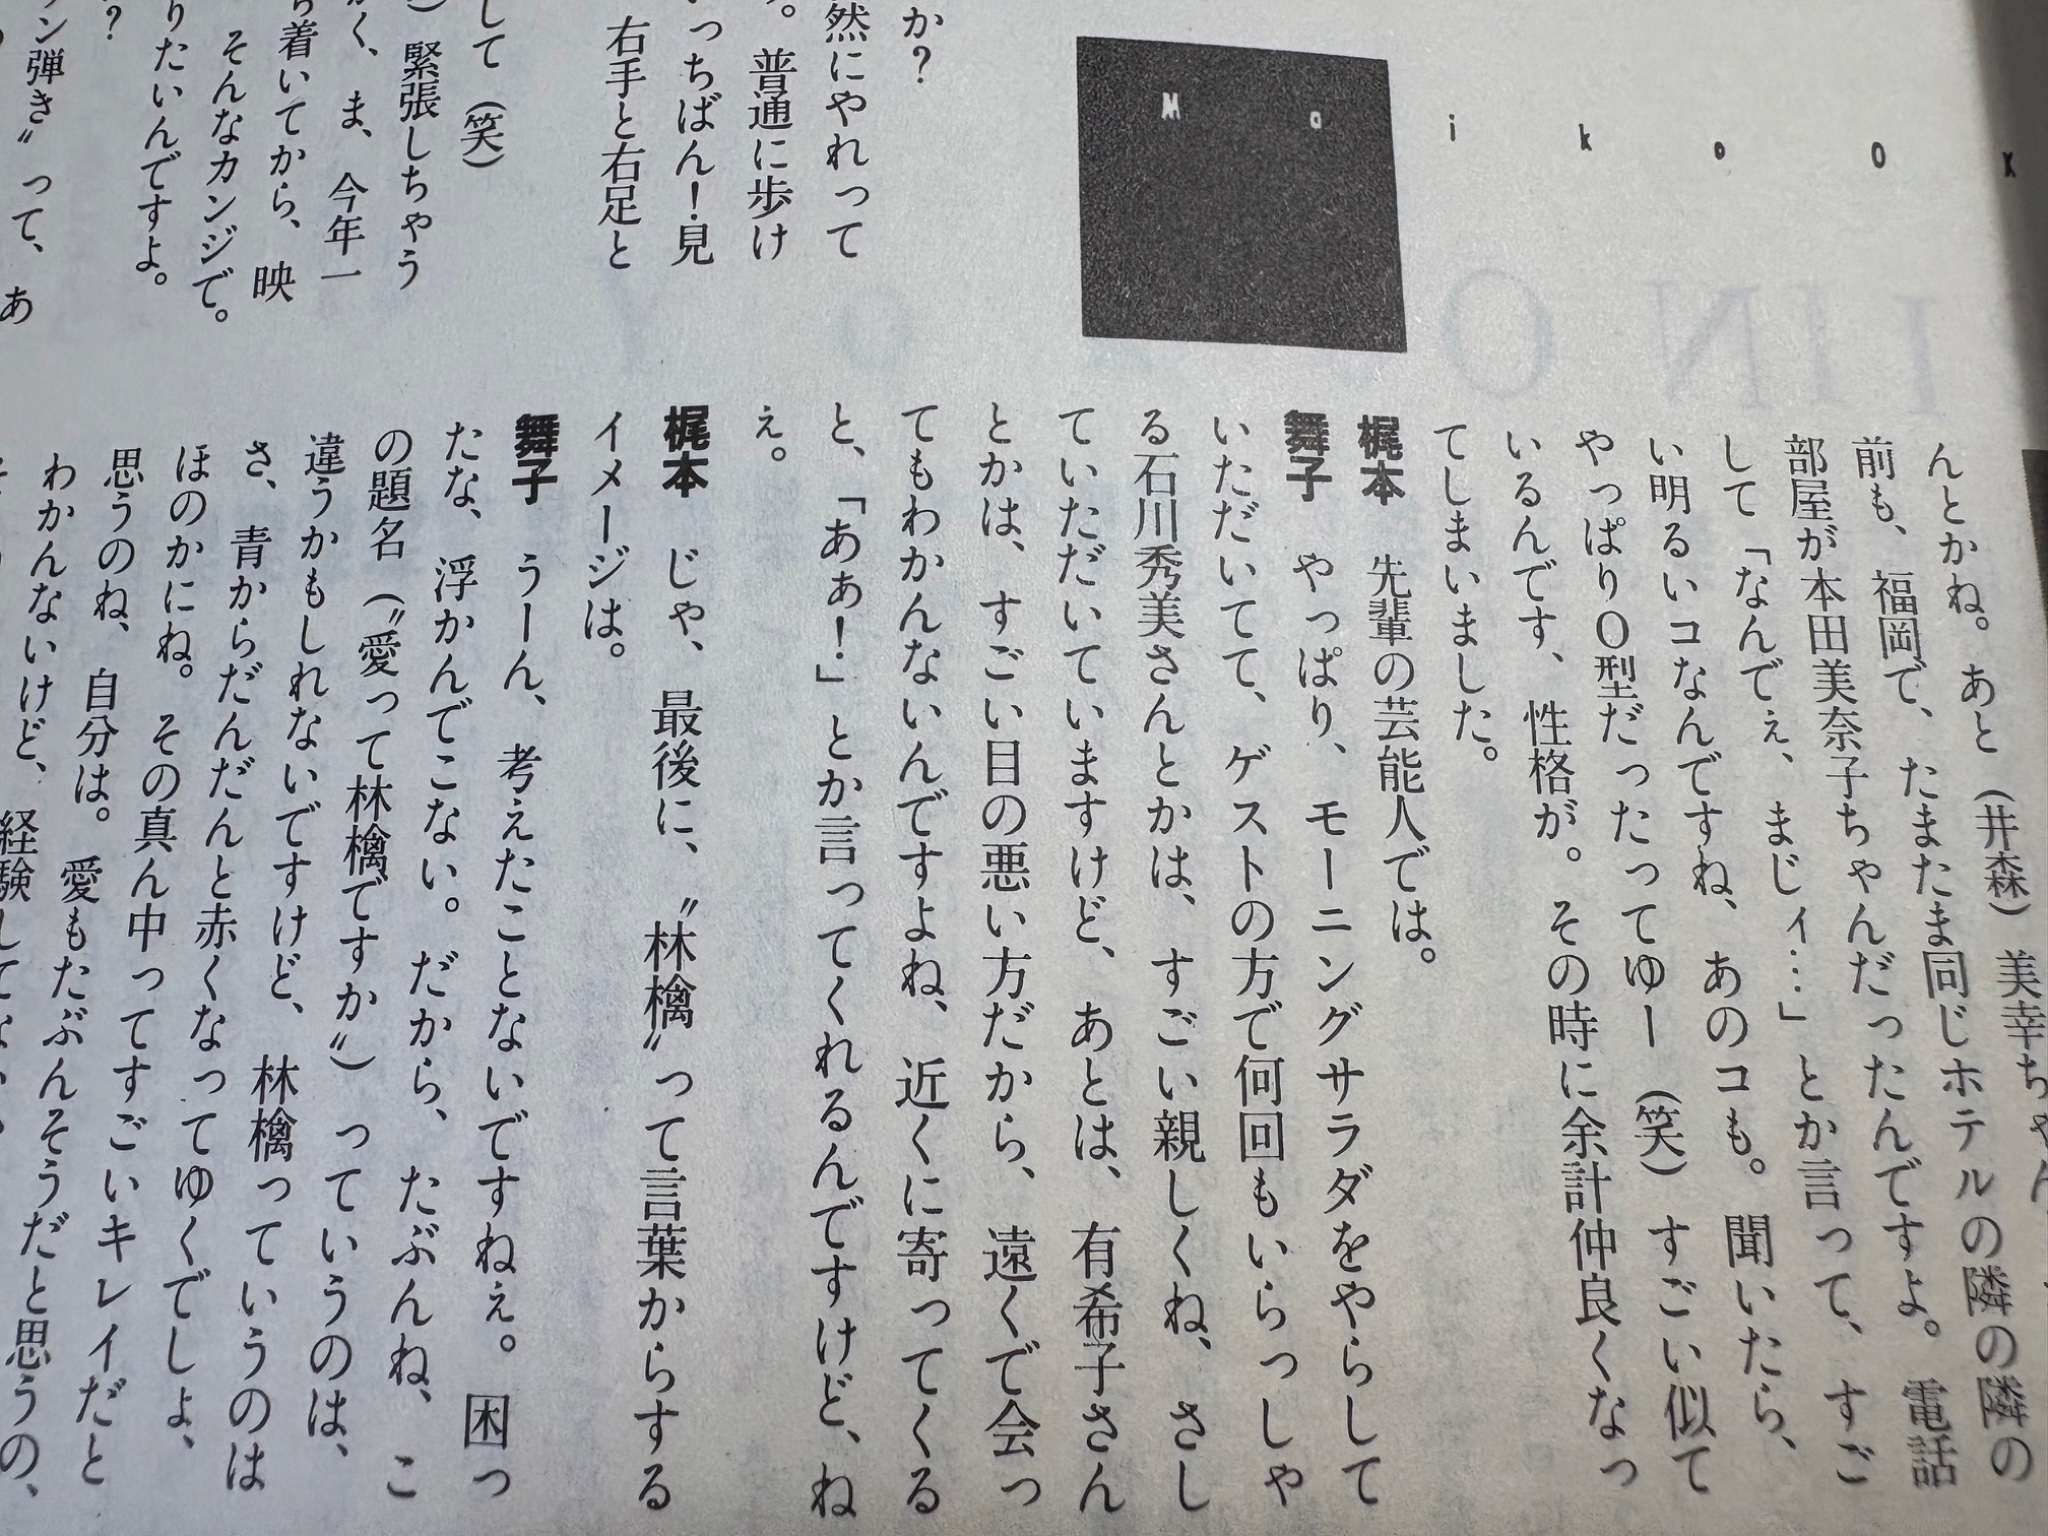 M a i k o O k
か?
然にやれって
。普通に歩け
っちばん!見
右手と右足と
して(笑)
緊張しちゃう
く、ま、今年一
着いてから、映
そんなカンジで。
りたいんですよ。
?
ン弾き〟って、あ
んとかね。あと(井森)美幸ちゃん
前も、福岡で、たまたま同じホテルの隣の隣の
部屋が本田美奈子ちゃんだったんですよ。電話
して「なんでぇ、まじィ…」とか言って、すご
い明るいコなんですね、あのコも。聞いたら、
やっぱりO型だったってゆー(笑)すごい似て
いるんです、性格が。その時に余計仲良くなっ
てしまいました。
梶本 先輩の芸能人では。
舞子 やっぱり、モーニングサラダをやらして
いただいてて、ゲストの方で何回もいらっしゃ
る石川秀美さんとかは、すごい親しくね、さし
ていただいていますけど、あとは、有希子さん
とかは、すごい目の悪い方だから、遠くで会っ
てもわかんないんですよね、近くに寄ってくる
と、「あぁ!」とか言ってくれるんですけど、ね
ぇ。
梶本 じゃ、最後に、〝林檎〟って言葉からする
イメージは。
舞子 うーん、考えたことないですねぇ。困っ
たな、浮かんでこない。だから、たぶんね、こ
の題名(〝愛って林檎ですか〟)っていうのは、
違うかもしれないですけど、林檎っていうのは
さ、青からだんだんと赤くなってゆくでしょ、
ほのかにね。その真ん中ってすごいキレイだと
思うのね、自分は。愛もたぶんそうだと思うの、
わかんないけど、経験してな